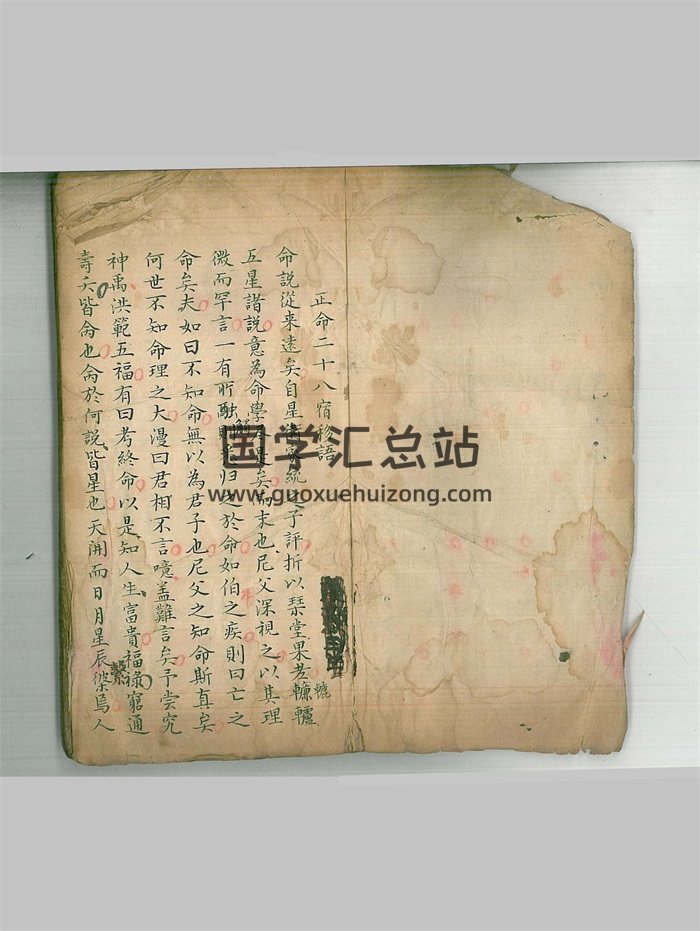 正命二十八宿秘語
命說從来遠矣自星統之子評折以琴堂果老轆轤
五星諸說意為命學是矣而末也尼父深視之以其理
微而罕言一有所融归之於命如伯之疾則曰亡之
命矣夫如曰不知命無以為君子也尼父之知命斯真矣
何世不知命理之大漫曰君相不言噫盖難言矣予尝究
神禹洪範五福有曰考終命以是知人生富貴福祿窮通
壽夭皆侖也侖於何說皆星也天開而日月星辰繫焉人
国学汇总站
www.guoxuehuizong.com